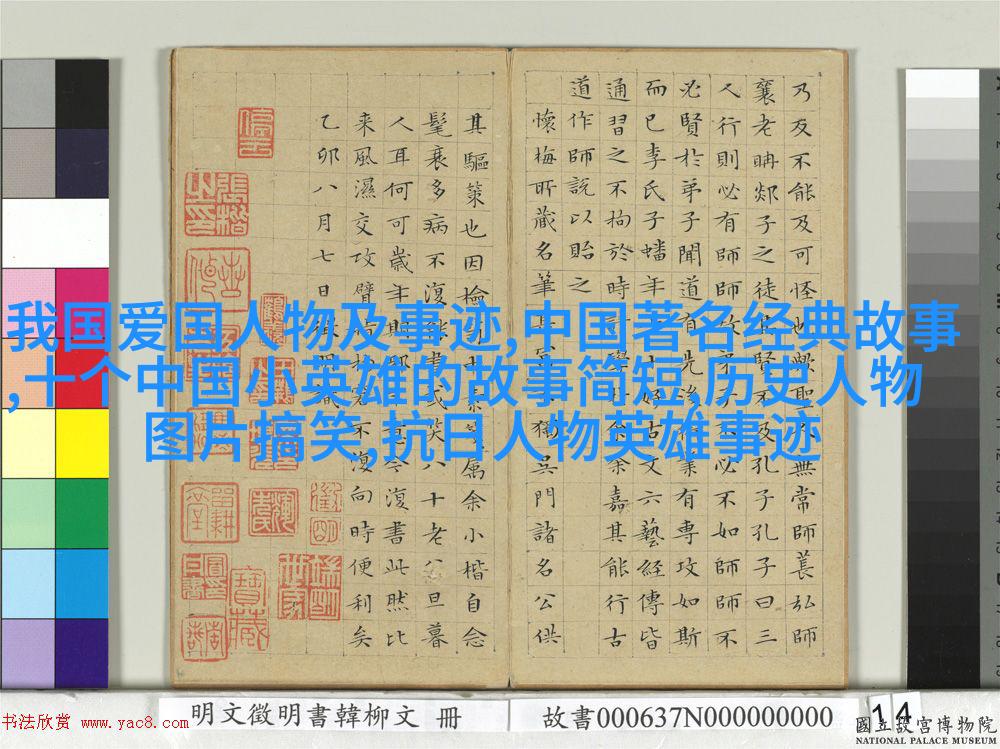 ,我国爱国人物及事迹,中国著名经典故事
,十个中国小英雄的故事简短,历史人物
图片搞笑,抗日人物英雄事迹
乃反不能及可怪也歟聖無常師萇弘師
襄老聃郯子之徒其賢不及孔子孔子曰三
人行則必有師師故弟子不必不如師師不
必賢於弟子聞道有先後術業有專攻如斯
而已李氏子蟠年十七好古文六藝經傳皆
通習之不拘於時請學於余余嘉其能行古
道作師說以貽之
懷梅所藏名筆甚富不獨吳門諸名公供
其驅策也因檢屬余小楷自念
髦衰多病不復能書或笑八十老公旦暮
人耳何可歲年期耶意今復書此然比
來風濕交攻臂指不復向時便利矣
乙卯八月七日徵明識
明文徵明書韓柳文 冊
故書000637N000000000
14
書法欣赏 www.yac8.com
國立故宮博物院
NATIONAL PALACE MUSEUM